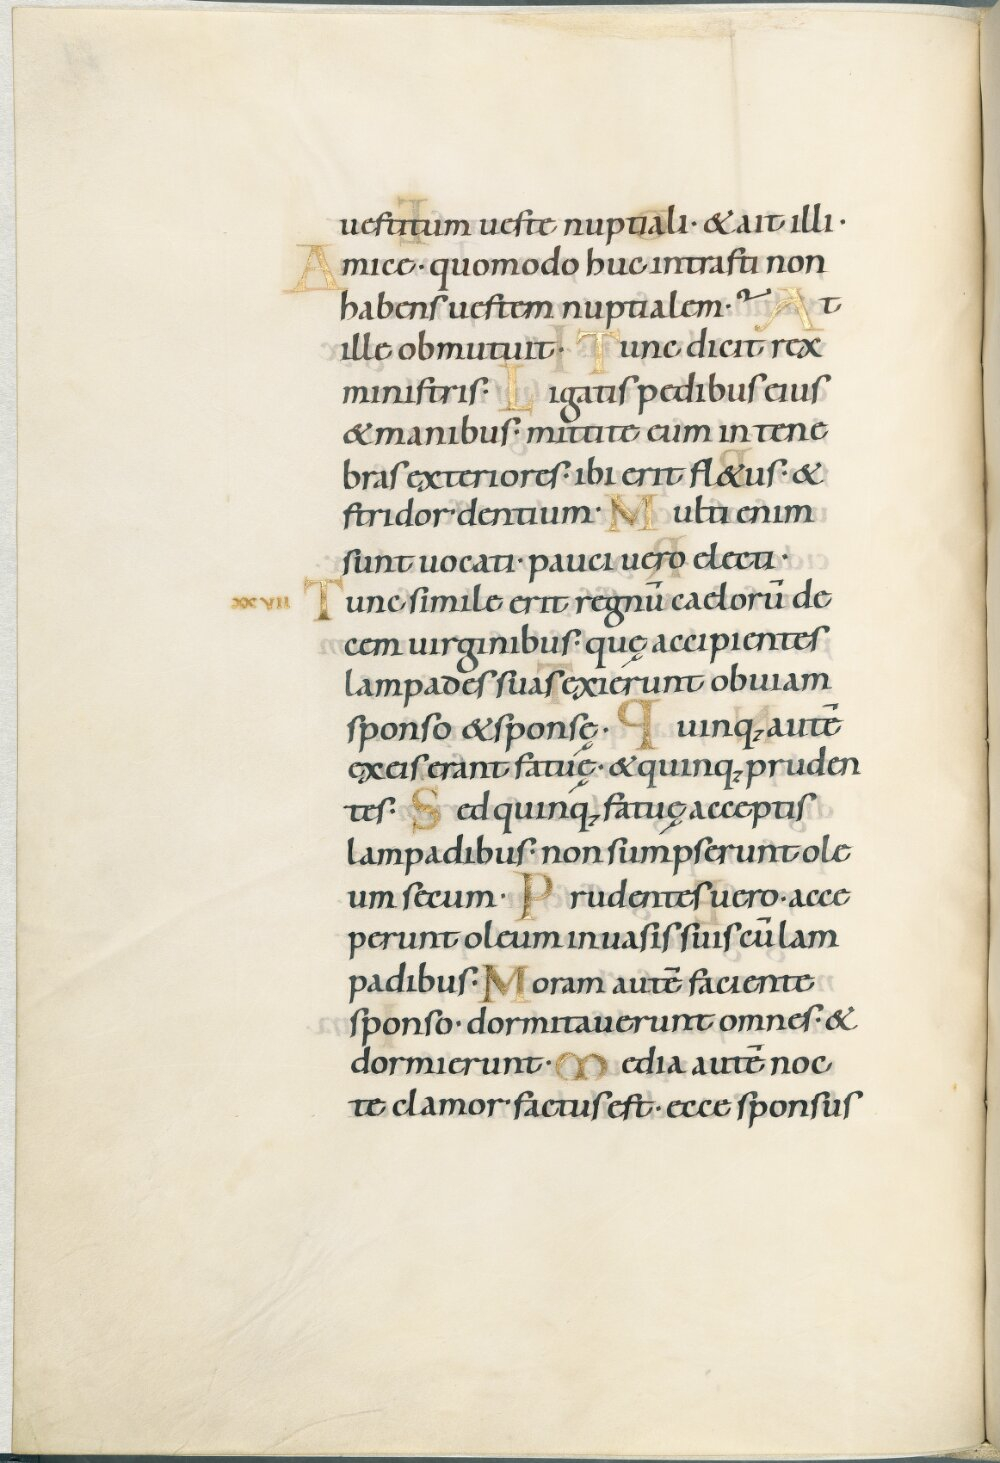 uestitum ueste nuptiali· & ait illi·
Amice· quomodo huc intrasti non
habens uestem nuptialem· At
ille obmutuit· Tunc dicit rex
ministris· Ligatis pedibus eius
& manibus· mittite eum in tene
bras exteriores· ibi erit fl&us· &
stridor dentium· Multi enim
sunt uocati· pauci uero electi·
xxvii Tunc simile erit regnū caelorū de
cem uirginibus· quę accipientes
lampades suas exierunt obuiam
sponso & sponsę· Quinq; autē
ex eis erant fatuę· & quinq; pruden
tes· Sed quinq; fatuę acceptis
lampadibus· non sumpserunt ole
um secum· Prudentes uero· acce
perunt oleum in uasis suis cū lam
padibus· Moram autē faciente
sponso· dormitauerunt omnes· &
dormierunt· Media autē noc
te clamor factus est· ecce sponsus